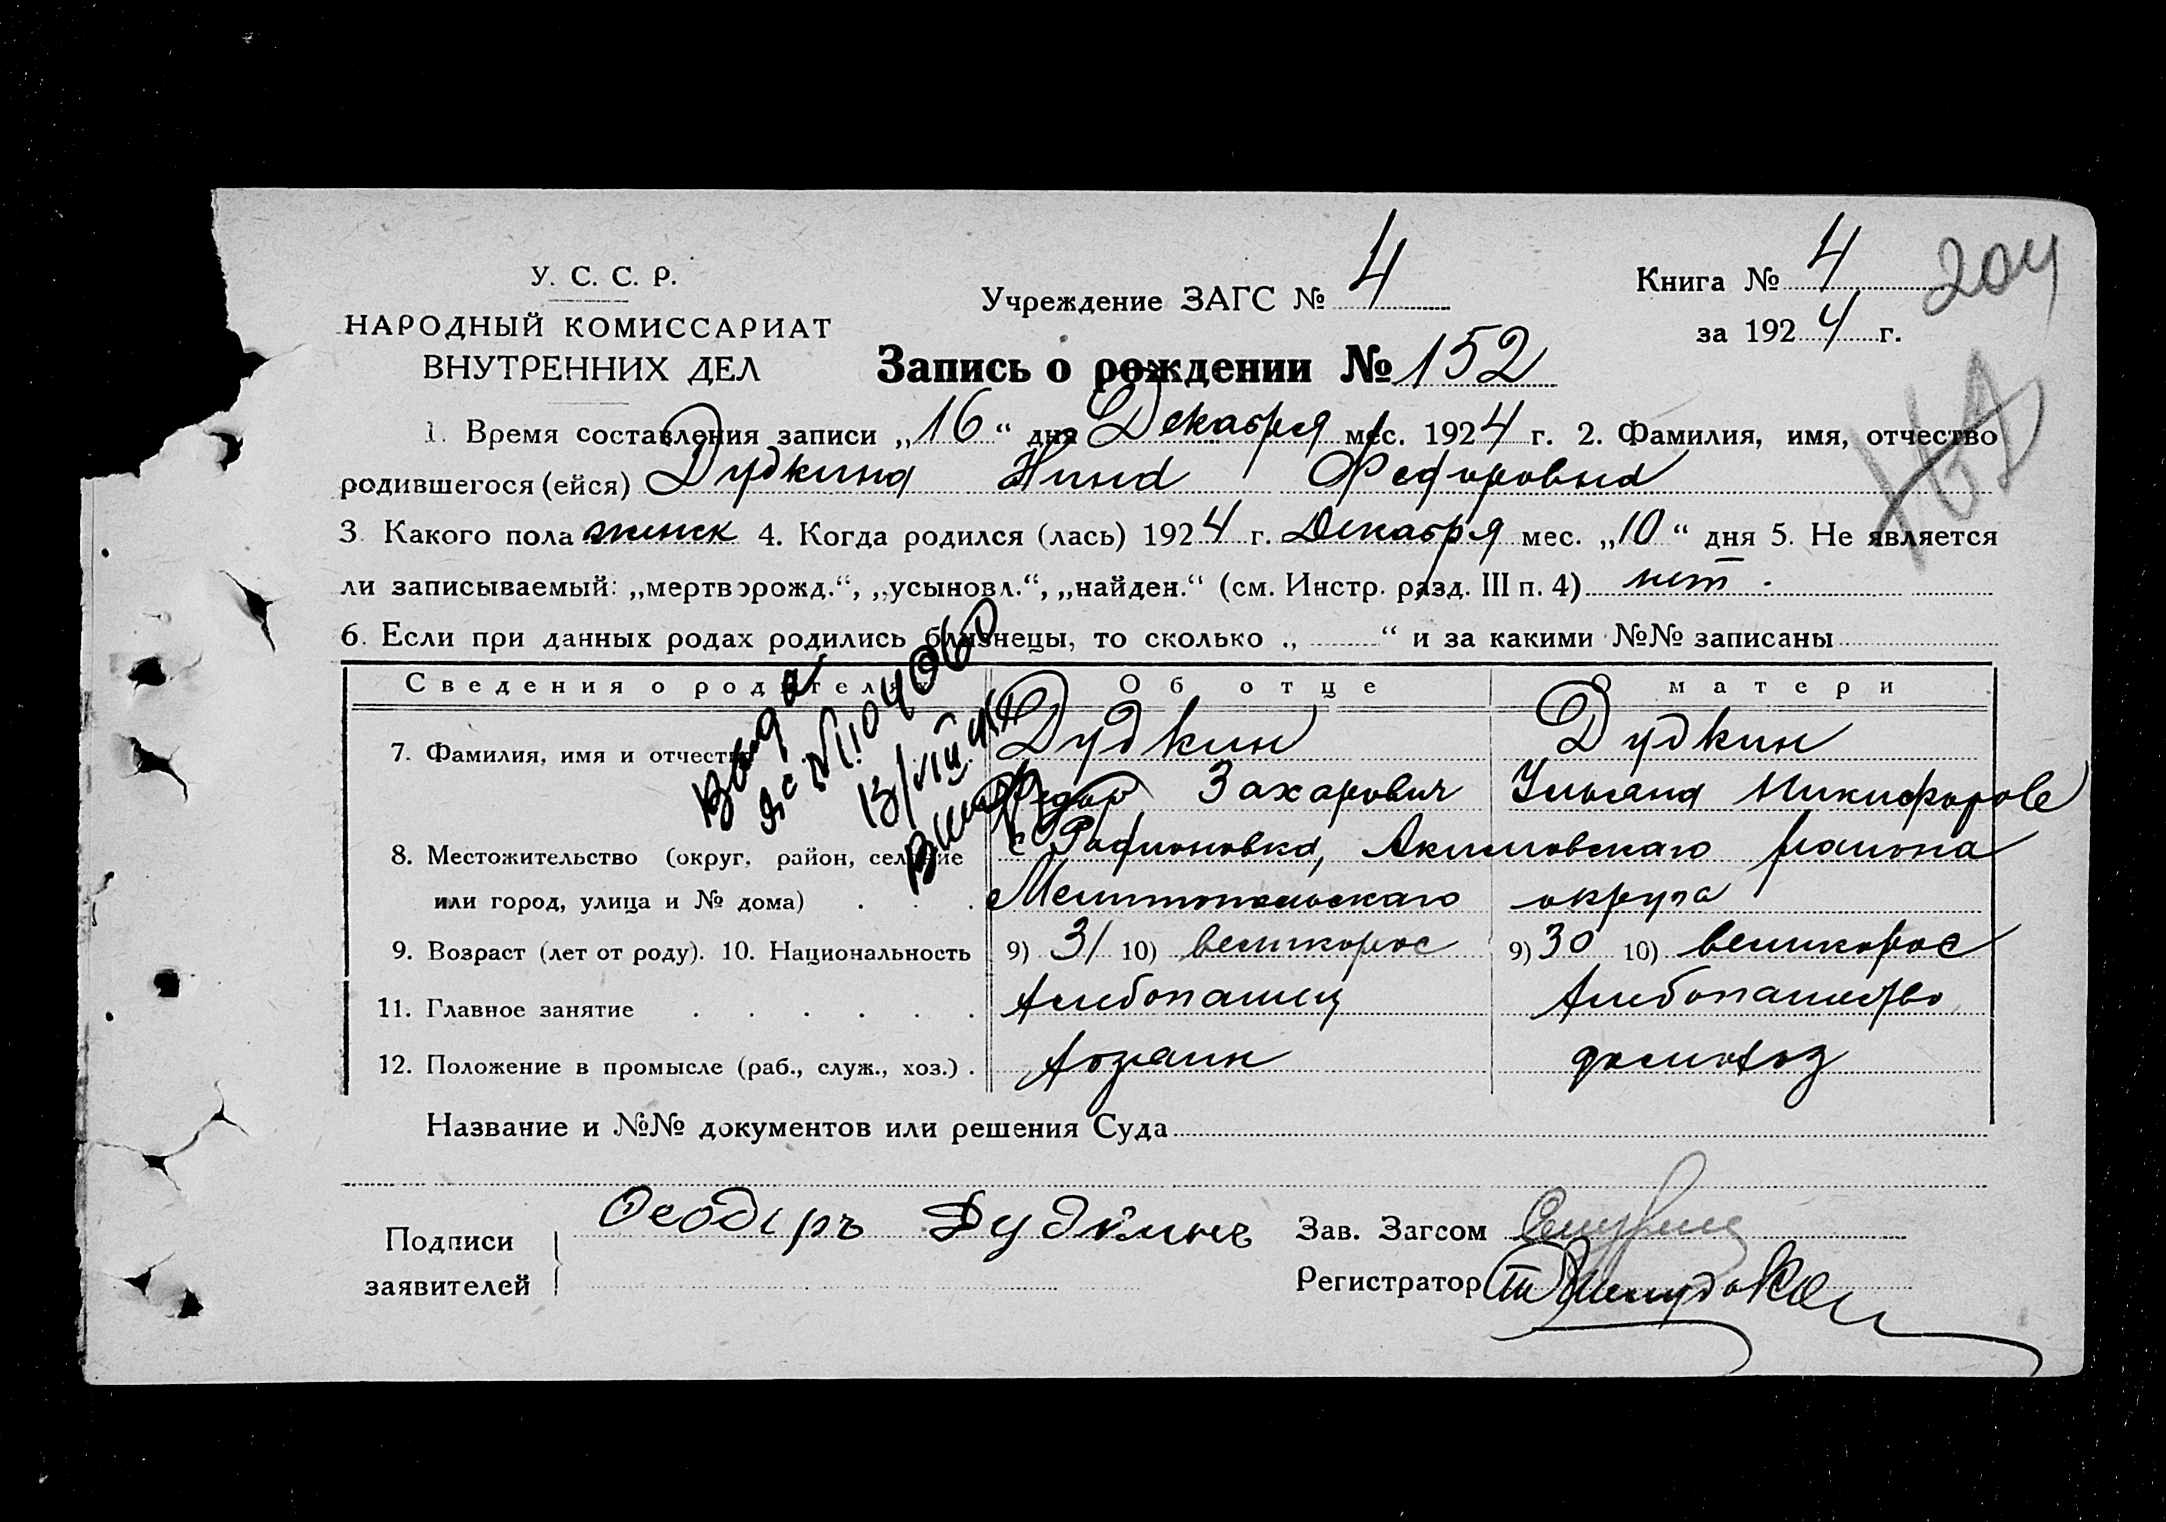 У. С. С. Р.
НАРОДНЫЙ КОМИССАРИАТ
ВНУТРЕННИХ ДЕЛ
Учреждение ЗАГС № 4
Книга № 4
204
за 1924 г.
Запись о рождении № 152
1. Время составления записи „16“ дня Декабря мес. 1924 г. 2. Фамилия, имя, отчество
родившегося (ейся) Дудкина Нина Федоровна
3. Какого пола женск 4. Когда родился (лась) 1924 г. Декабря мес. „10“ дня 5. Не является
ли записываемый: „мертворожд.“, „усыновл.“, „найден.“ (см. Инстр. разд. III п. 4) нет.
6. Если при данных родах родились близнецы, то сколько „ “ и за какими №№ записаны
Сведения о родителях Об отце О матери
7. Фамилия, имя и отчество Дудкин Дудкин
Федор Захарович Ульяна Никифоровс
8. Местожительство (округ, район, селение с Родионовка, Акимовскаго района
или город, улица и № дома) . . . Мелитопольскаго округа
9. Возраст (лет от роду). 10. Национальность 9) 31 10) великорос 9) 30 10) великорос
11. Главное занятие . . . . . . Хлебопашец Хлебопашество
12. Положение в промысле (раб., служ., хоз.) . хозяин домохоз
Название и №№ документов или решения Суда
Подписи
заявителей
Дудкинъ
Зав. Загсом
Регистратор